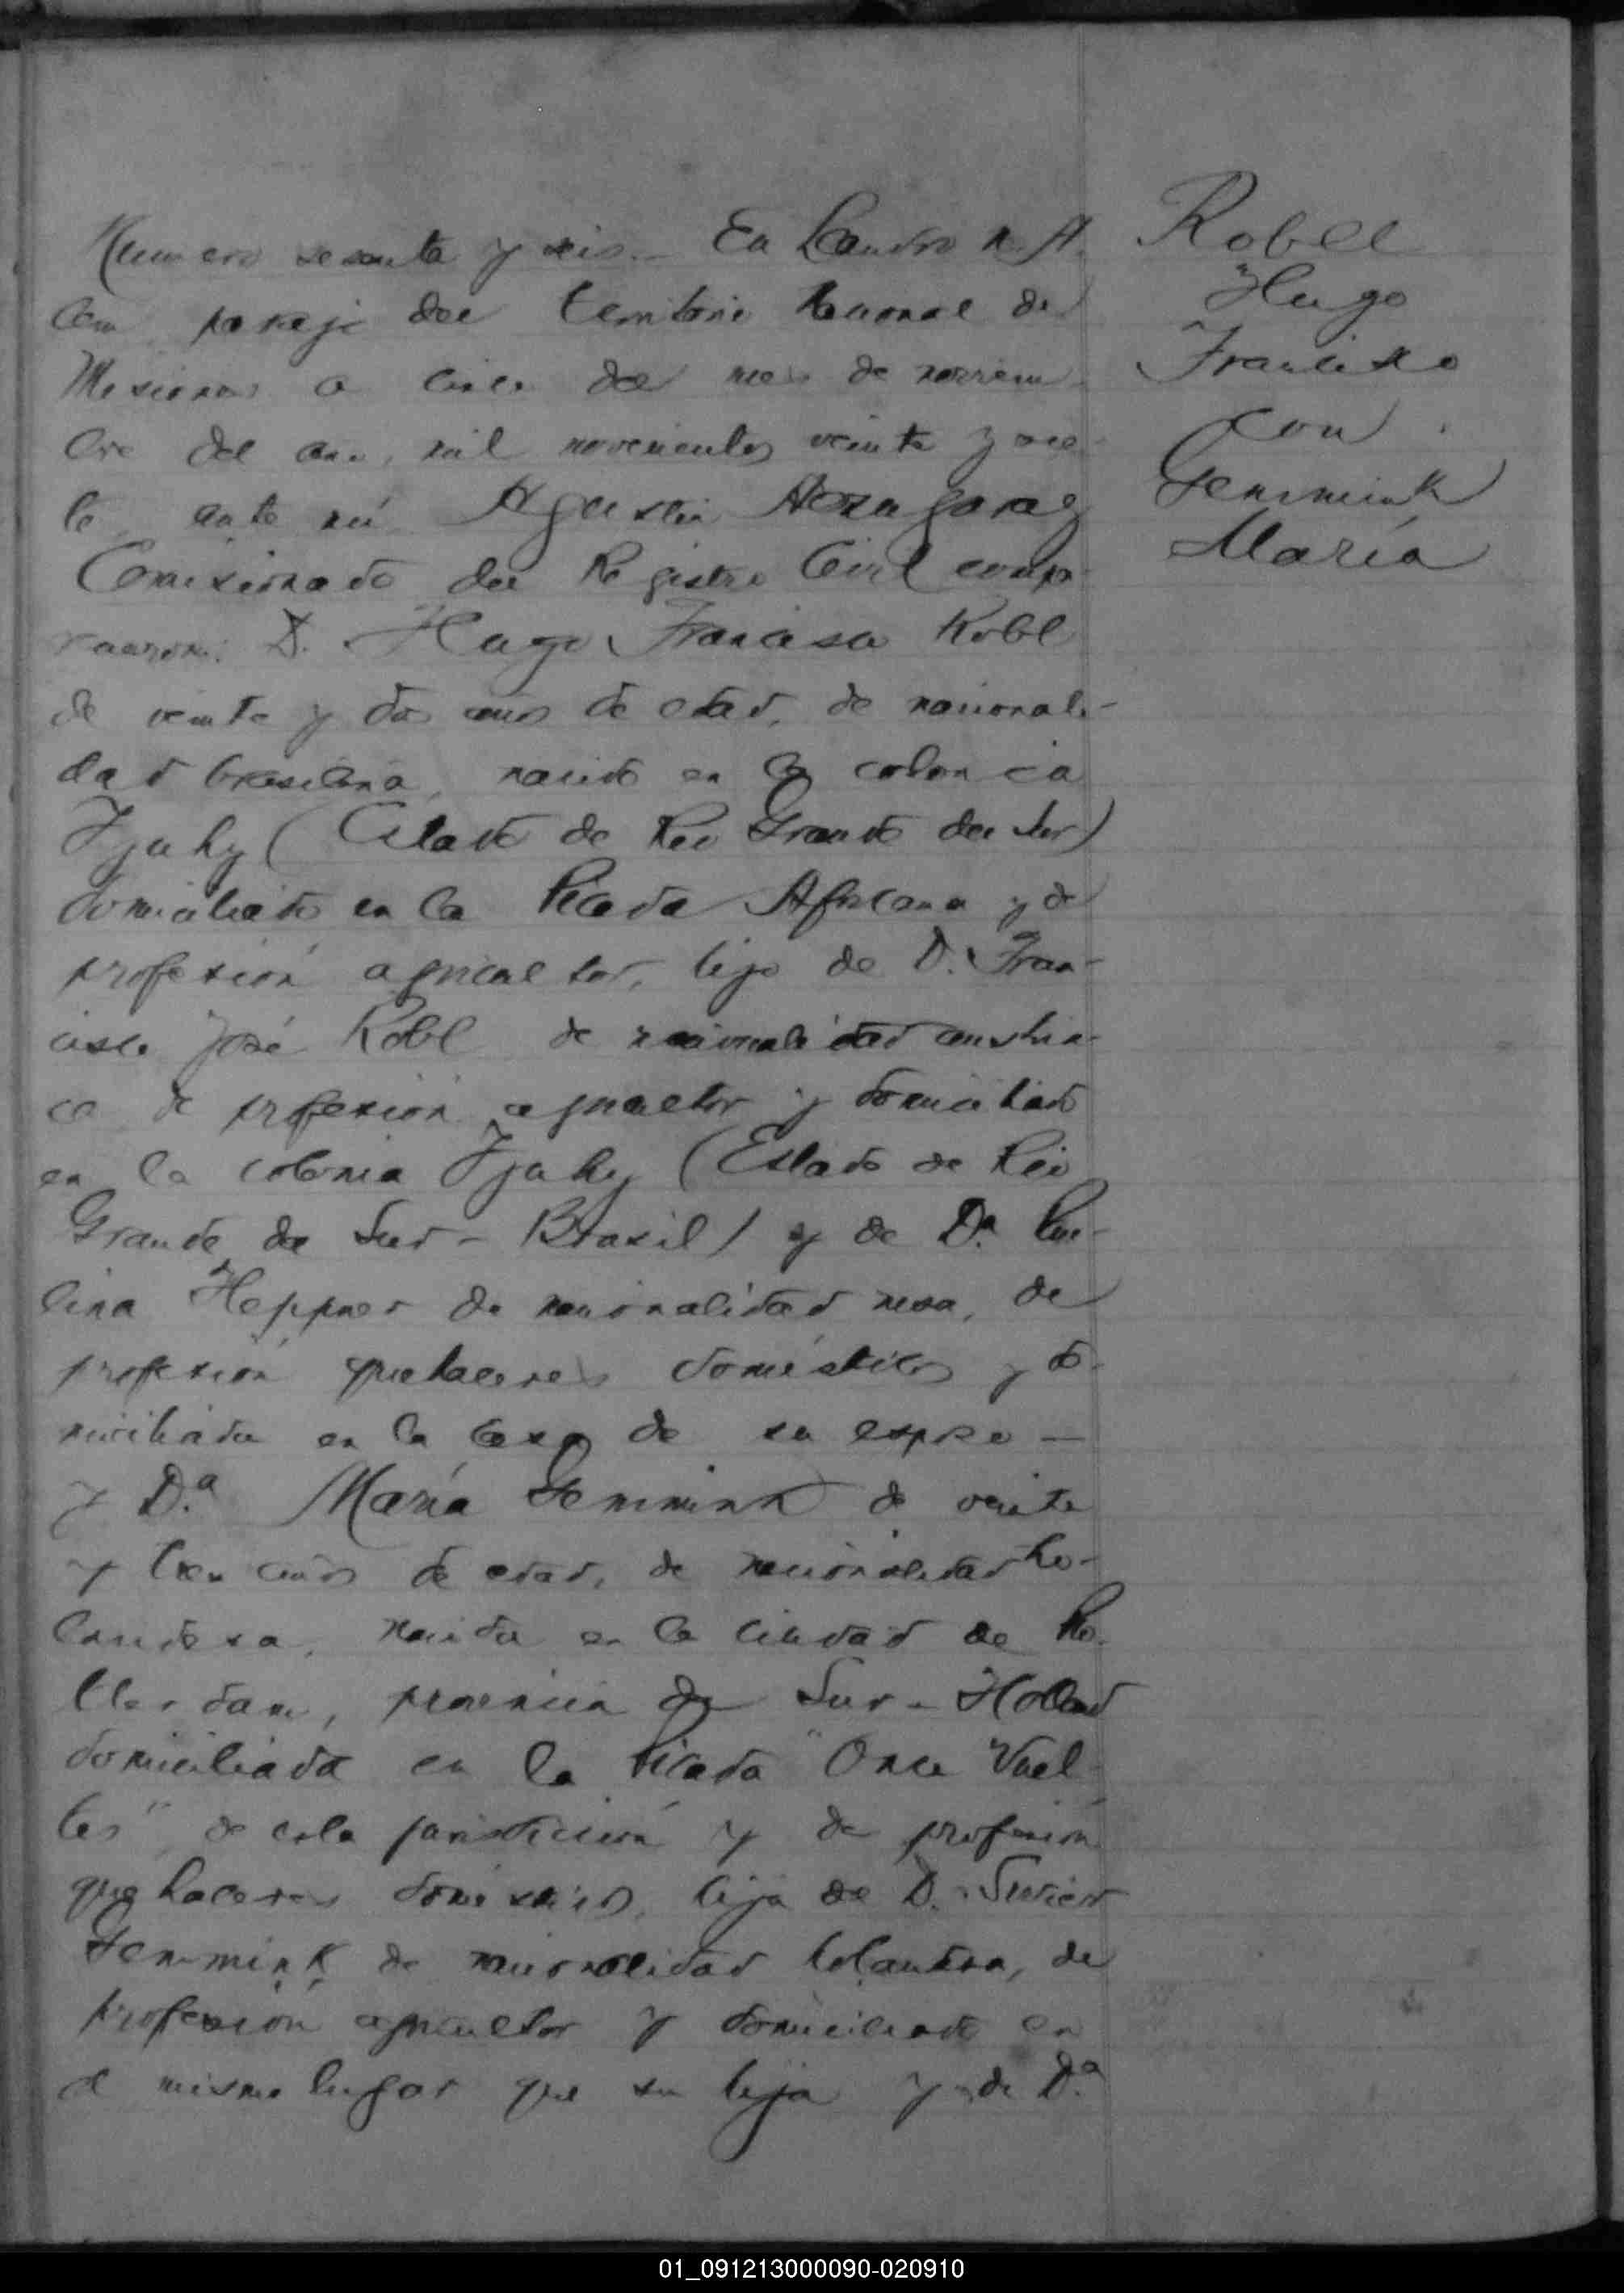 Numero sesenta y seis.- En Leandro N. A.
lem paraje del territorio Nacional de
Misiones a cinco del mes de noviem-
bre del año, mil novecientos veinte y sie-
te ante mí Agustin
Comisionado del Registro Civil compa-
recieron: D. Hugo Francisco Robl
de veinte y dos años de edad, de nacionali-
dad brasilena, nacido en la colonia
Ijuhy (Estado de Rio Grande del Sur)
domiciliado en la Picada Africana y de
profesión agricultor, hijo de D. Fran-
cisco José Robl de nacionalidad austria-
ca de profesión agricultor y domiciliado
en la colonia Ijuhy (Estado de Rio
Grande del Sur - Brasil) y de Da. Pau-
lina Heppner de nacionalidad rusa, de
profesión quehaceres domésticos y do-
miciliada en la casa de su esposo —
y D.a María Gemmink de veinte
y tres años de edad, de nacionalidad ho-
landesa, nacida en la ciudad de Ro-
tterdam, provincia de Sur-Holland
domiciliada en la Picada "Once Vuel-
tas" de esta jurisdicción y de profesión
quehaceres domésticos, hija de D.
Gemmink de nacionalidad holandesa, de
profesión agricultor y domiciliado en
el mismo lugar que su hija y de D.a
Robll
Hugo
Francisco
con
Gemmink
María
01_091213000090-020910